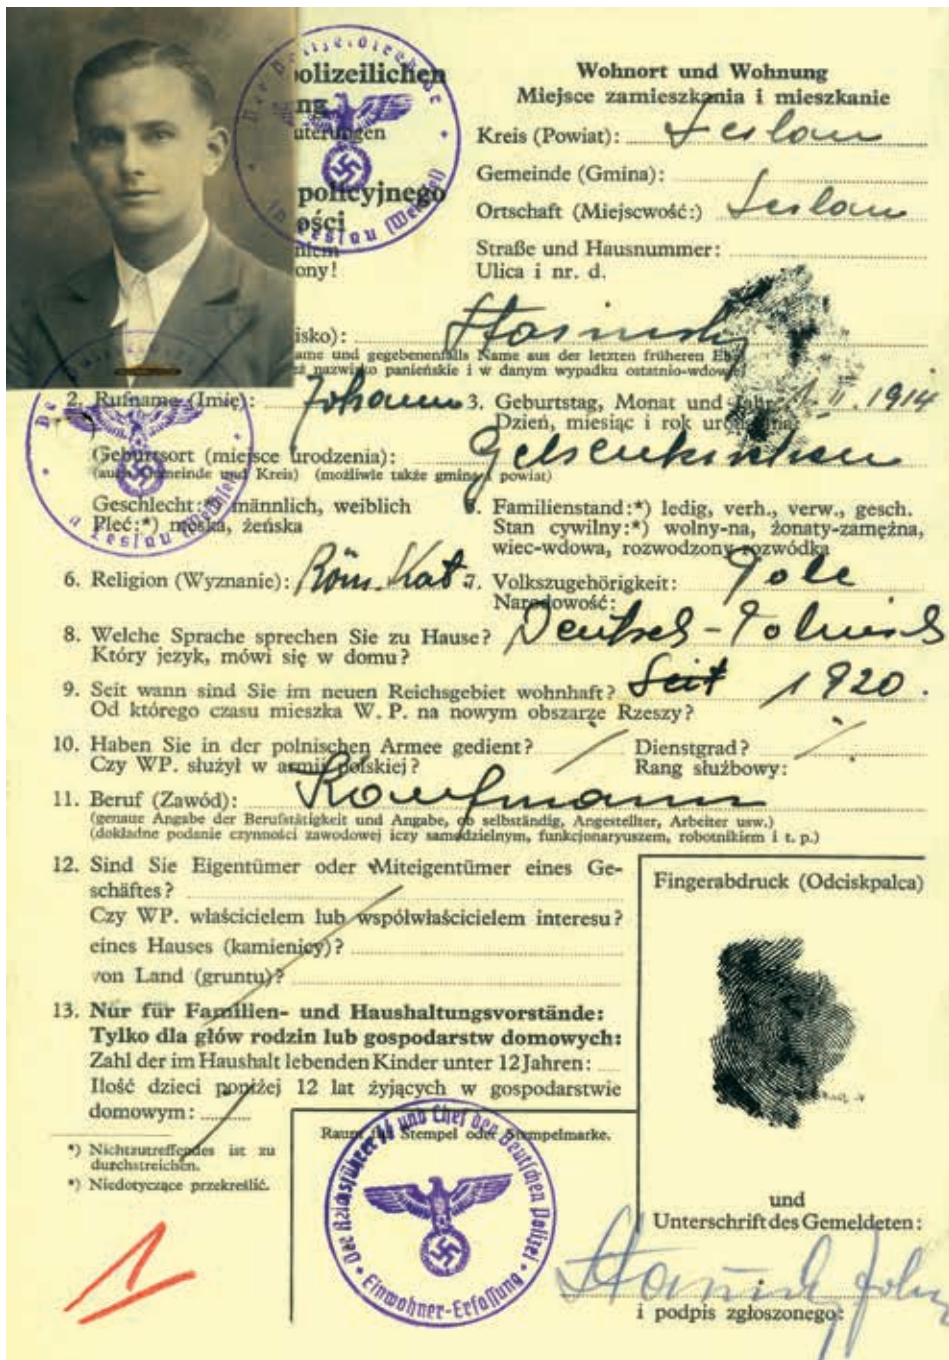 olizeilichen
ng
uterungen
policyjnego
ości
niem
ony!
Der Polizei-Direktor
in Leslau (Weichsel)
Wohnort und Wohnung
Miejsce zamieszkania i mieszkanie
Kreis (Powiat): Leslau
Gemeinde (Gmina):
Ortschaft (Miejscwość:) Leslau
Straße und Hausnummer:
Ulica i nr. d.
isko):
ame und gegebenenfalls Name aus der letzten früheren Ehe
eż nazwisko panieńskie i w danym wypadku ostatnio-wdowie
2. Rufname (Imię): Johann
3. Geburtstag, Monat und Jahr 1914
Dzień, miesiąc i rok urodzenia:
Geburtsort (miejsce urodzenia): Gelsenkirchen
(auch Gemeinde und Kreis) (możliwie także gmina i powiat)
Geschlecht:*) männlich, weiblich
Płeć:*) męska, żeńska
Familienstand:*) ledig, verh., verw., gesch.
Stan cywilny:*) wolny-na, żonaty-zamężna,
wiec-wdowa, rozwodzony-rozwódka
6. Religion (Wyznanie): Röm. Kat.
7. Volkszugehörigkeit: Pole
Narodowość:
8. Welche Sprache sprechen Sie zu Hause? Deutsch - Polnisch
Który jezyk, mówi się w domu?
9. Seit wann sind Sie im neuen Reichsgebiet wohnhaft? Seit 1920.
Od którego czasu mieszka W. P. na nowym obszarze Rzeszy?
10. Haben Sie in der polnischen Armee gedient? Dienstgrad?
Czy WP. służył w armji polskiej? Rang służbowy:
11. Beruf (Zawód): Kaufmann
(genaue Angabe der Berufstätigkeit und Angabe, ob selbständig, Angestellter, Arbeiter usw.)
(dokładne podanie czynności zawodowej iczy samodzielnym, funkcjonaryuszem, robotnikiem i t. p.)
12. Sind Sie Eigentümer oder Miteigentümer eines Ge-
schäftes?
Czy WP. właścicielem lub współwłaścicielem interesu?
eines Hauses (kamienicy)?
von Land (gruntu)?
13. Nur für Familien- und Haushaltungsvorstände:
Tylko dla głów rodzin lub gospodarstw domowych:
Zahl der im Haushalt lebenden Kinder unter 12 Jahren:
Ilość dzieci poniżej 12 lat żyjących w gospodarstwie
domowym:
*) Nichtzutreffendes ist zu
durchstreichen.
*) Niedotyczące przekreślić.
Raum für Stempel oder Stempelmarke.
Der Reichsführer SS und Chef der Deutschen Polizei
Einwohner-Erfassung
Fingerabdruck (Odciskpalca)
und
Unterschrift des Gemeldeten:
i podpis zgłoszonego: